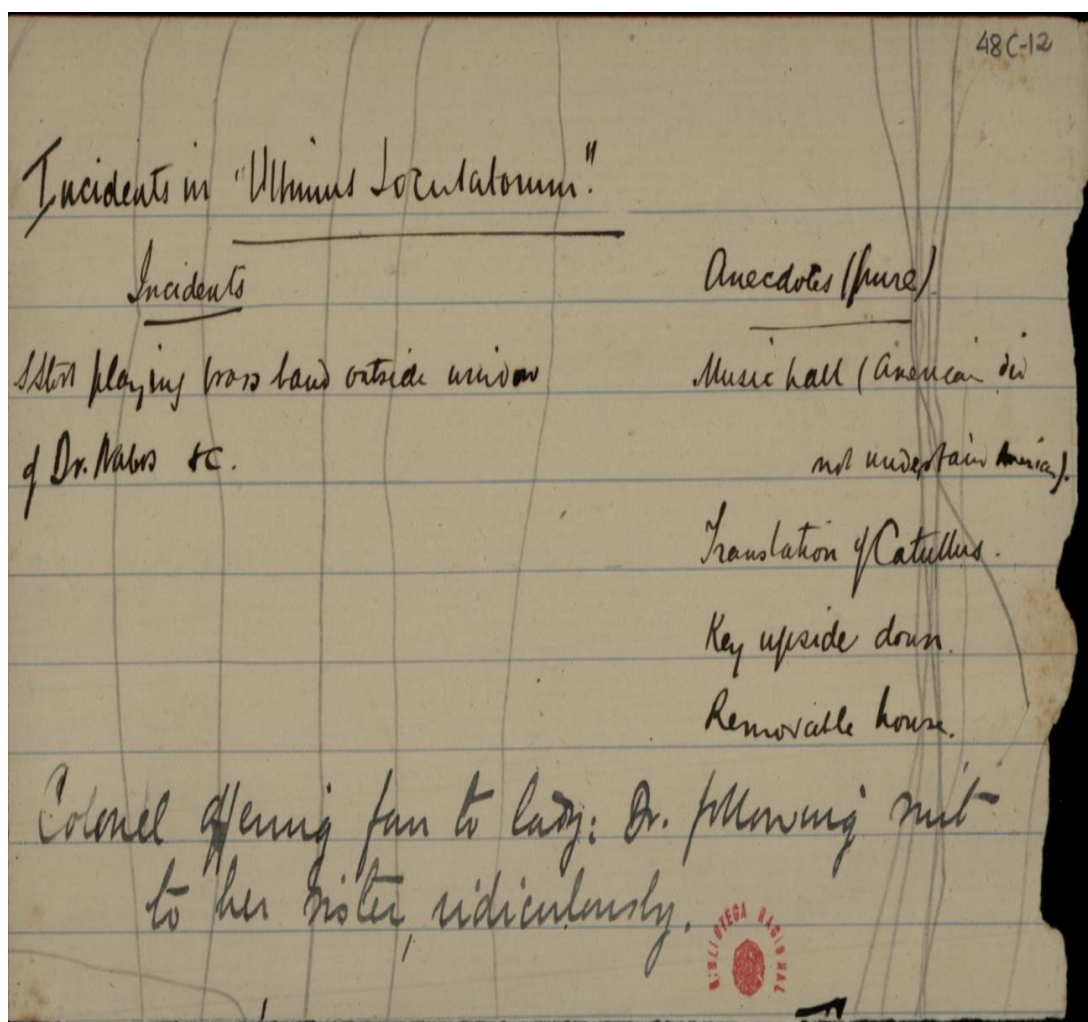 48C-12
Incidents in "Ultimus Joculatorum."
Incidents
Anecdotes (pure).
playing brass band outside window
of Dr. Nabos &c.
Music hall (American did
not understand American).
Translation of Catullus.
Key upside down.
Removable house.
Colonel offering fan to lady: Dr. following suit
to her sister, ridiculously.
BIBLIOTECA NACIONAL